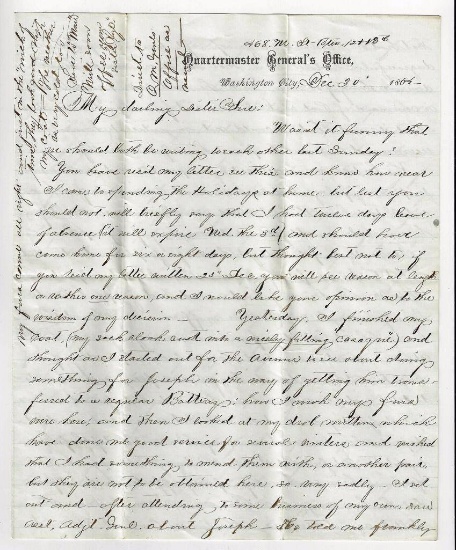 468. M. St. bten 12 & 13th
Quartermaster General's Office,
Washington City, Dec. 30" 186
My darling Sister Sue:
Wasn't it funny that
we should both be writing to each other last Sunday?
You have rec'd my letter ere this and know how near
I came to spending the Holidays at home but lest you
should not will briefly say that I had twelve days leave
of absence (it will expire Wed. the 3d) and should have
come home for six or eight days, but thought best not to; if
you rec'd my letter written 25" Dec. you will see reason at length
or rather one reason, and I would like your opinion as to the
wisdom of my decision —
Yesterday I finished my
coat, (my sack cloak cut into a nicely fitting ) and
thought as I started out for the Avenue I'd see about doing
something for Joseph in the way of getting him trans-
ferred to a regular Battery; how I wish my furs
were here, and then I looked at my drab mittens which
have done me good service for several winters and wished
that I had something to mend them with, or another pair,
but they are not to be obtained here, so very sadly — I set
out and — after attending to some business of my own, saw
Asst. Adgt. Genl. about Joseph — He told me frankly
my furs come all right and just in the nick of
time
Direct to
Q.M. Genl's
Office as
usual